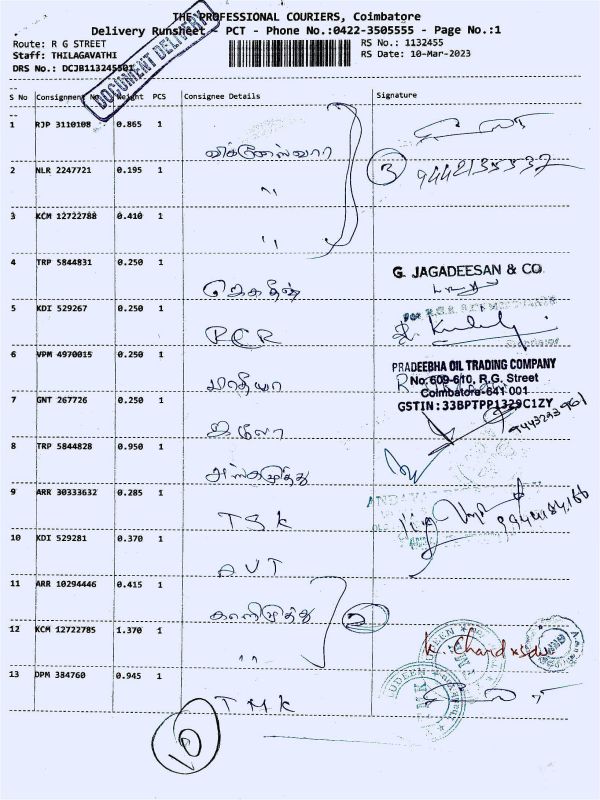 THE PROFESSIONAL COURIERS, Coimbatore
Delivery Runsheet - PCT - Phone No.:0422-3505555 - Page No.:1
Route: R G STREET RS No.: 1132455
Staff: THILAGAVATHI RS Date: 10-Mar-2023
DRS No.: DCJB113245501
DOCUMENT DELIVERY
S No Consignment No Weight PCS Consignee Details Signature
1 RJP 3110108 0.865 1
விக்னேஸ்வரா
2 NLR 2247721 0.195 1 3
〃
3 KCM 12722788 0.410 1
〃
4 TRP 5844831 0.250 1 G. JAGADEESAN & CO.
ஜெகதீஸ்
5 KDI 529267 0.250 1
PCR
6 VPM 4970015 0.250 1 PRADEEBHA OIL TRADING COMPANY
No.609-610, R.G. Street
Coimbatore-641 001
7 GNT 267726 0.250 1 GSTIN:33BPTPP1329C1ZY
8 TRP 5844828 0.950 1
9 ARR 30333632 0.285 1
TSK
10 KDI 529281 0.370 1
AVT
11 ARR 10294446 0.415 1
காளிமுத்து 2
12 KCM 12722785 1.370 1
〃
13 DPM 384760 0.945 1
TMK
10